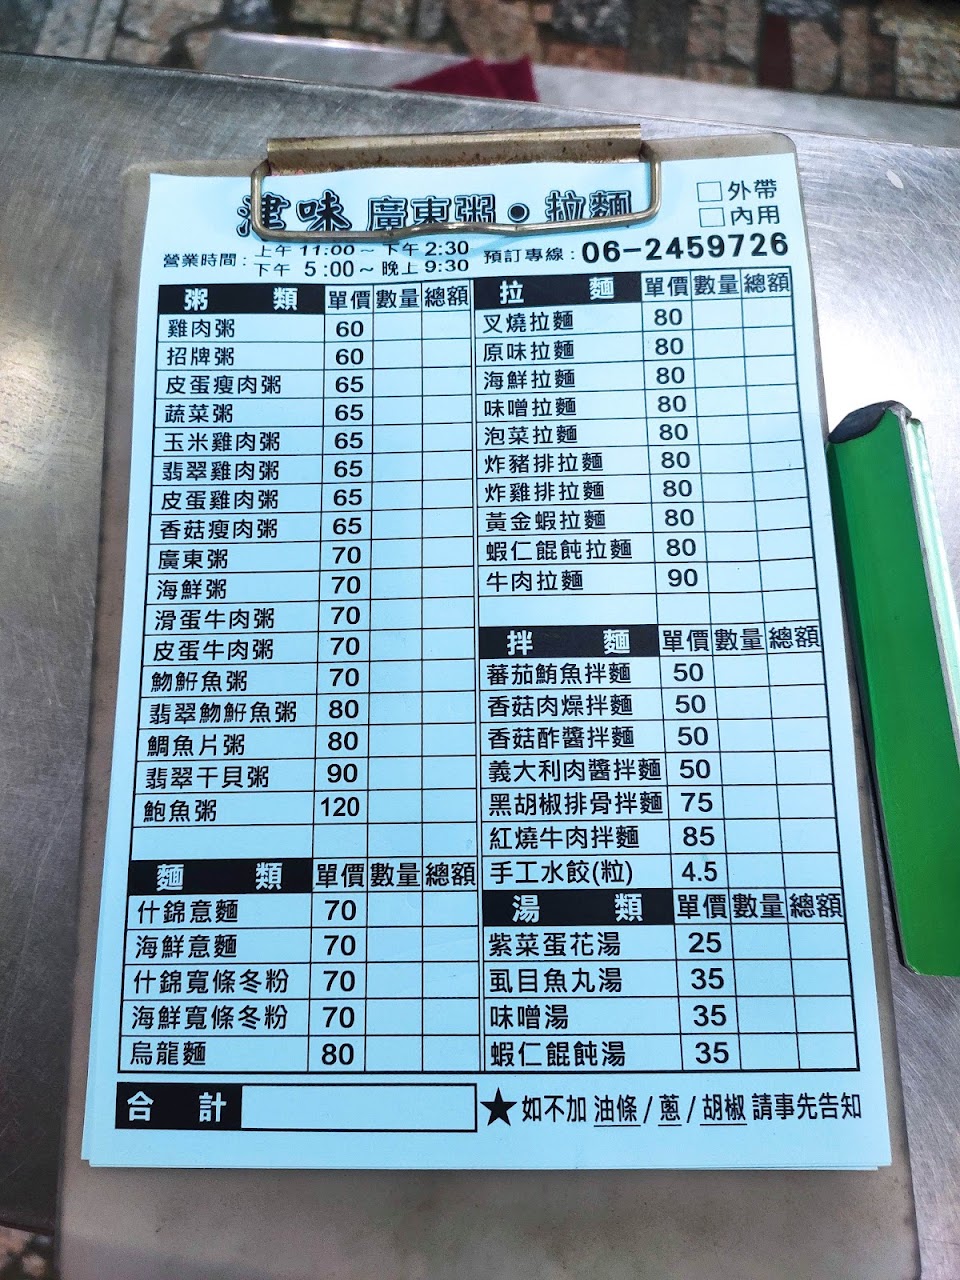 津味 廣東粥・拉麵
□外帶
□內用
營業時間：上午 11:00～下午 2:30
下午 5:00～晚上 9:30
預訂專線：06-2459726
粥類 單價 數量 總額
雞肉粥 60
招牌粥 60
皮蛋瘦肉粥 65
蔬菜粥 65
玉米雞肉粥 65
翡翠雞肉粥 65
皮蛋雞肉粥 65
香菇瘦肉粥 65
廣東粥 70
海鮮粥 70
滑蛋牛肉粥 70
皮蛋牛肉粥 70
魩魸魚粥 70
翡翠魩魸魚粥 80
鯛魚片粥 80
翡翠干貝粥 90
鮑魚粥 120
麵類 單價 數量 總額
什錦意麵 70
海鮮意麵 70
什錦寬條冬粉 70
海鮮寬條冬粉 70
烏龍麵 80
拉麵 單價 數量 總額
叉燒拉麵 80
原味拉麵 80
海鮮拉麵 80
味噌拉麵 80
泡菜拉麵 80
炸豬排拉麵 80
炸雞排拉麵 80
黃金蝦拉麵 80
蝦仁餛飩拉麵 80
牛肉拉麵 90
拌麵 單價 數量 總額
蕃茄鮪魚拌麵 50
香菇肉燥拌麵 50
香菇酢醬拌麵 50
義大利肉醬拌麵 50
黑胡椒排骨拌麵 75
紅燒牛肉拌麵 85
手工水餃(粒) 4.5
湯類 單價 數量 總額
紫菜蛋花湯 25
虱目魚丸湯 35
味噌湯 35
蝦仁餛飩湯 35
合計
★如不加 油條/蔥/胡椒 請事先告知